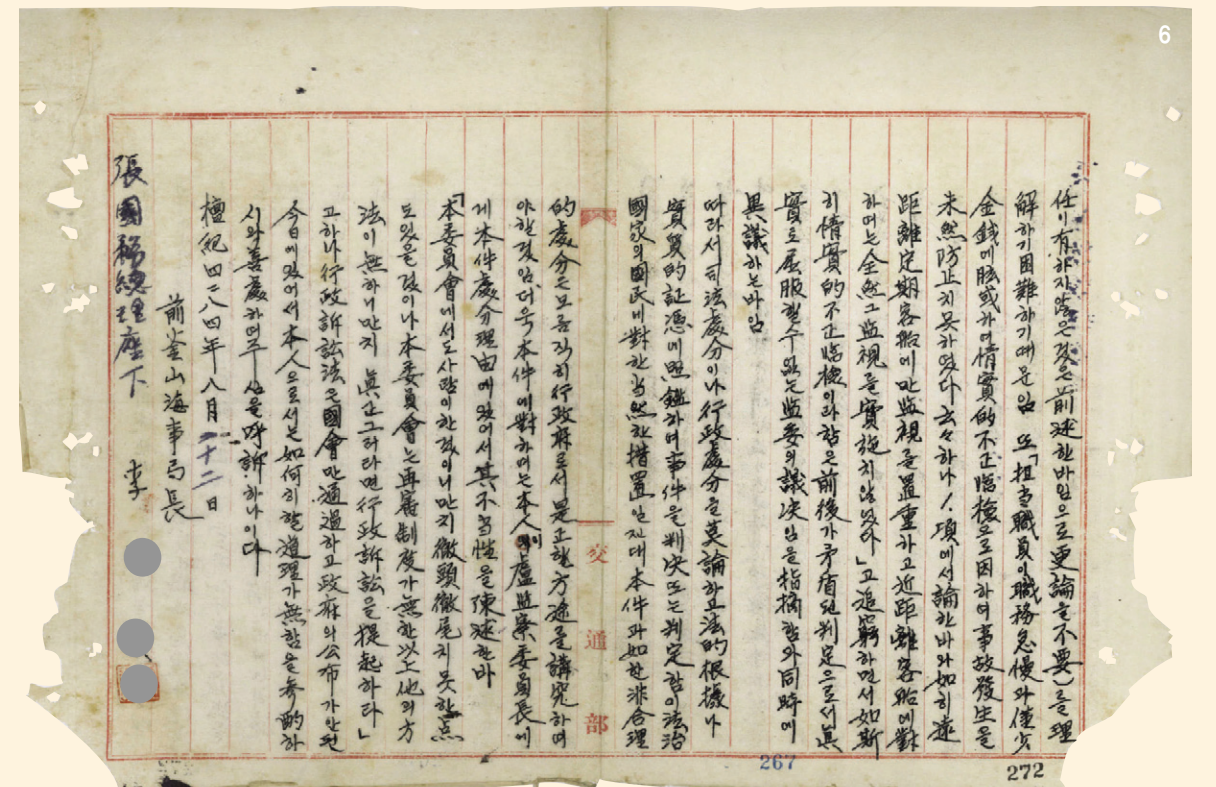 任이有하지않은것은前述한바임으로更論을不要)를理
解하기困難하기때문임 또「担当職員이職務怠慢과僅少
金錢에眩惑하여情實的不正臨檢으로因하여事故發生을
未然防止치못하였다云々하나 1.項에서論한바와如히遠
距離定期客船에만監視를置重하고近距離客船에對
하여는全然그監視를實施치않었다」고追窮하면서如斯
히情實的不正臨檢이라함은前後가矛盾된判定으로서眞
實로屈服할수없는監委의議決임을指摘함과同時에
異議하는바임
따라서司法處分이나行政處分을莫論하고法的根據나
實質的証憑에照鑑하여事件을判決또는判定함이法治
國家의國民에對한当然한措置일진대本件과如한非合理
的處分은모름직히行政府로서是正할方途를講究하여
야할것임더욱本件에對하여는本人이盧監察委員長에
게本件處分理由에있어서其不当性을陳述한바
「本委員會에서도사람이한것이니만치徹頭徹尾치못한点
도있을것이나本委員會는再審制度가無한以上他의方
法이無하니만치 眞正그러타면行政訴訟을提起하라」
고하나行政訴訟法은國會만通過하고政府의公布가안된
今日에있어서本人으로서는如何히할道理가無함을參酌하
시와善處하여주심을呼訴하나이다
檀紀四二八四年八月二十二日
前釜山海事局長
李
張國務總理座下
交通部
267
272
6